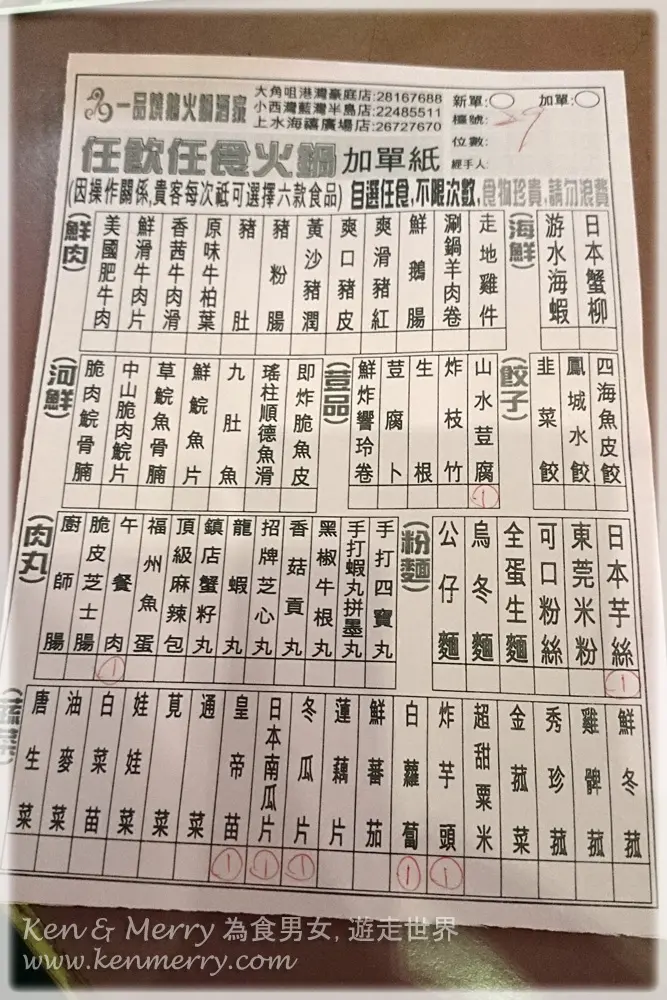 一品燒鵝火鍋酒家
大角咀港灣豪庭店:28167688
小西灣藍灣半島店:22485511
上水海禧廣場店:26727670
新單: 加單:
檯號: 29
位數:
經手人:
任飲任食火鍋 加單紙
(因操作關係,貴客每次祗可選擇六款食品) 自選任食,不限次數,食物珍貴,請勿浪費
(海鮮)
日本蟹柳
游水海蝦
(鮮肉)
走地雞件
涮鍋羊肉卷
鮮鵝腸
爽滑豬紅
爽口豬皮
黃沙豬潤
豬粉腸
豬肚
原味牛柏葉
香茜牛肉滑
鮮滑牛肉片
美國肥牛肉
(餃子)
四海魚皮餃
鳳城水餃
韭菜餃
(荳品)
山水荳腐 1
炸枝竹
生根
荳腐卜
鮮炸響玲卷
(河鮮)
即炸脆魚皮
瑤柱順德魚滑
九肚魚
鮮鯇魚片
草鯇魚骨腩
中山脆肉鯇片
脆肉鯇骨腩
(粉麵)
日本芋絲 1
東莞米粉
可口粉絲
全蛋生麵
烏冬麵
公仔麵
(肉丸)
手打四寶丸
手打蝦丸拼墨丸
黑椒牛根丸
香菇貢丸
招牌芝心丸
龍蝦丸
鎮店蟹籽丸
頂級麻辣包
福州魚蛋
午餐肉 1
脆皮芝士腸
廚師腸
鮮冬菰
雞髀菰
秀珍菰
金菰菜
超甜粟米
炸芋頭 1
白蘿蔔 1
鮮蕃茄
蓮藕片
冬瓜片 1
日本南瓜片 1
皇帝苗 1
通菜
莧菜
娃娃菜
白菜苗
油麥菜
唐生菜
Ken & Merry 為食男女, 遊走世界
www.kenmerry.com